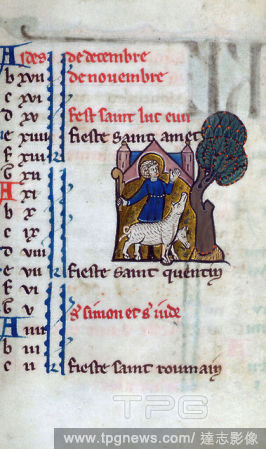 A ides de decembre
b xvii de novembre
c xvi
d xv fest saint luc euu
e xiiii fieste saint amet
f xiii
A xi
b x
c ix
d viii
e vii
f vi fieste saint quentin
G v
A iiii s' simon et s' iude
b iii
c ii fieste saint roumain
TPG
www.tpgnews.com/達志影像